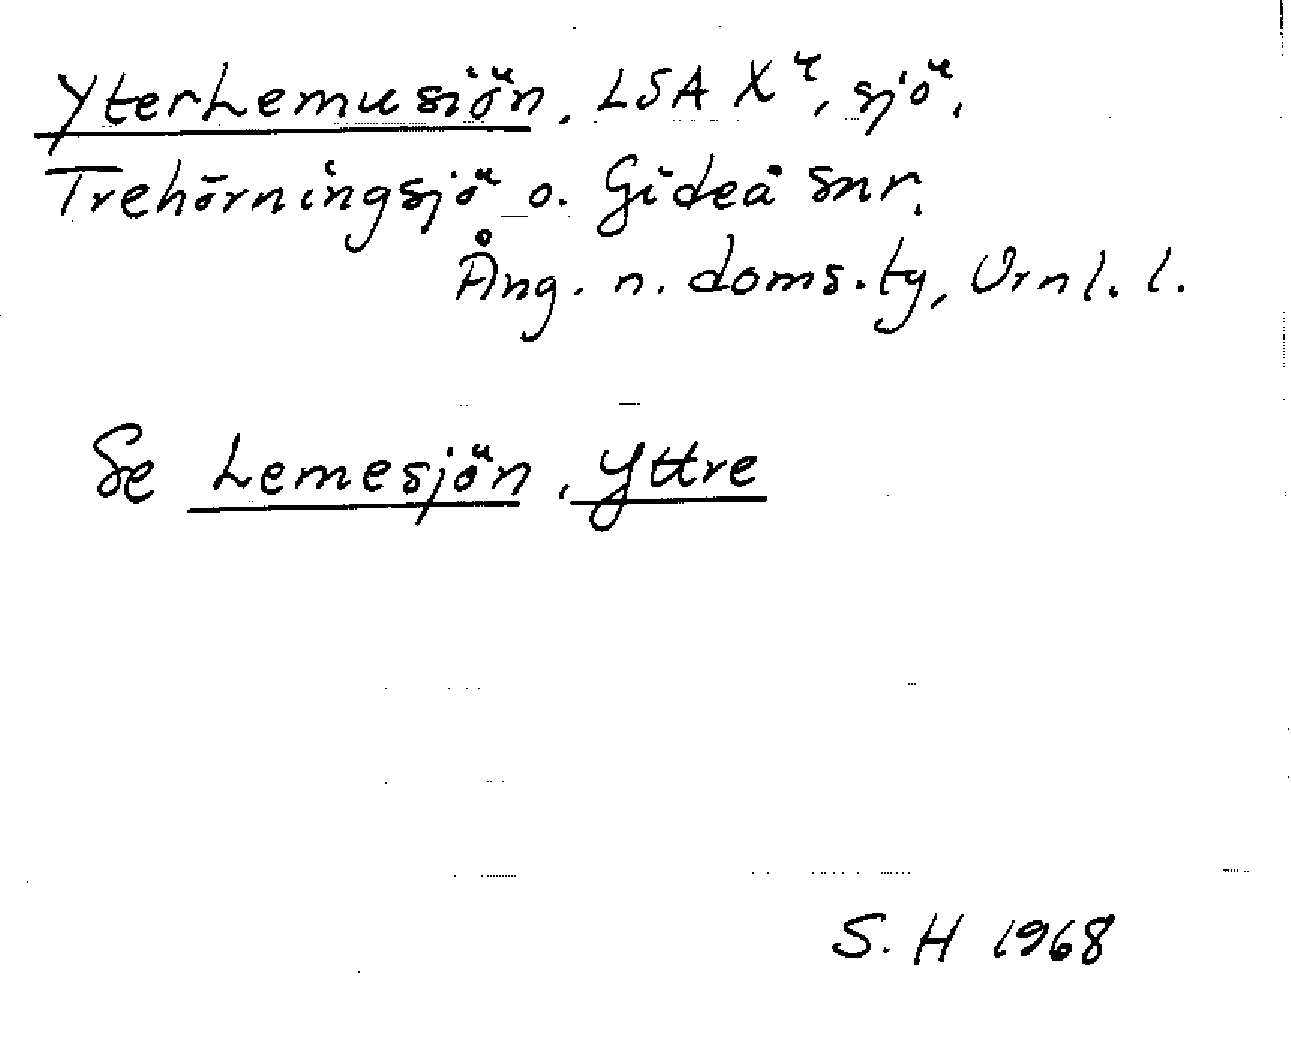 YterLemusiön, LSA X⁴, sjö.
Trehörningsjö o. Gideå snr.
Ång. n. doms.ty, Vrnl. l.
Se Lemesjön, Yttre
S. H 1968